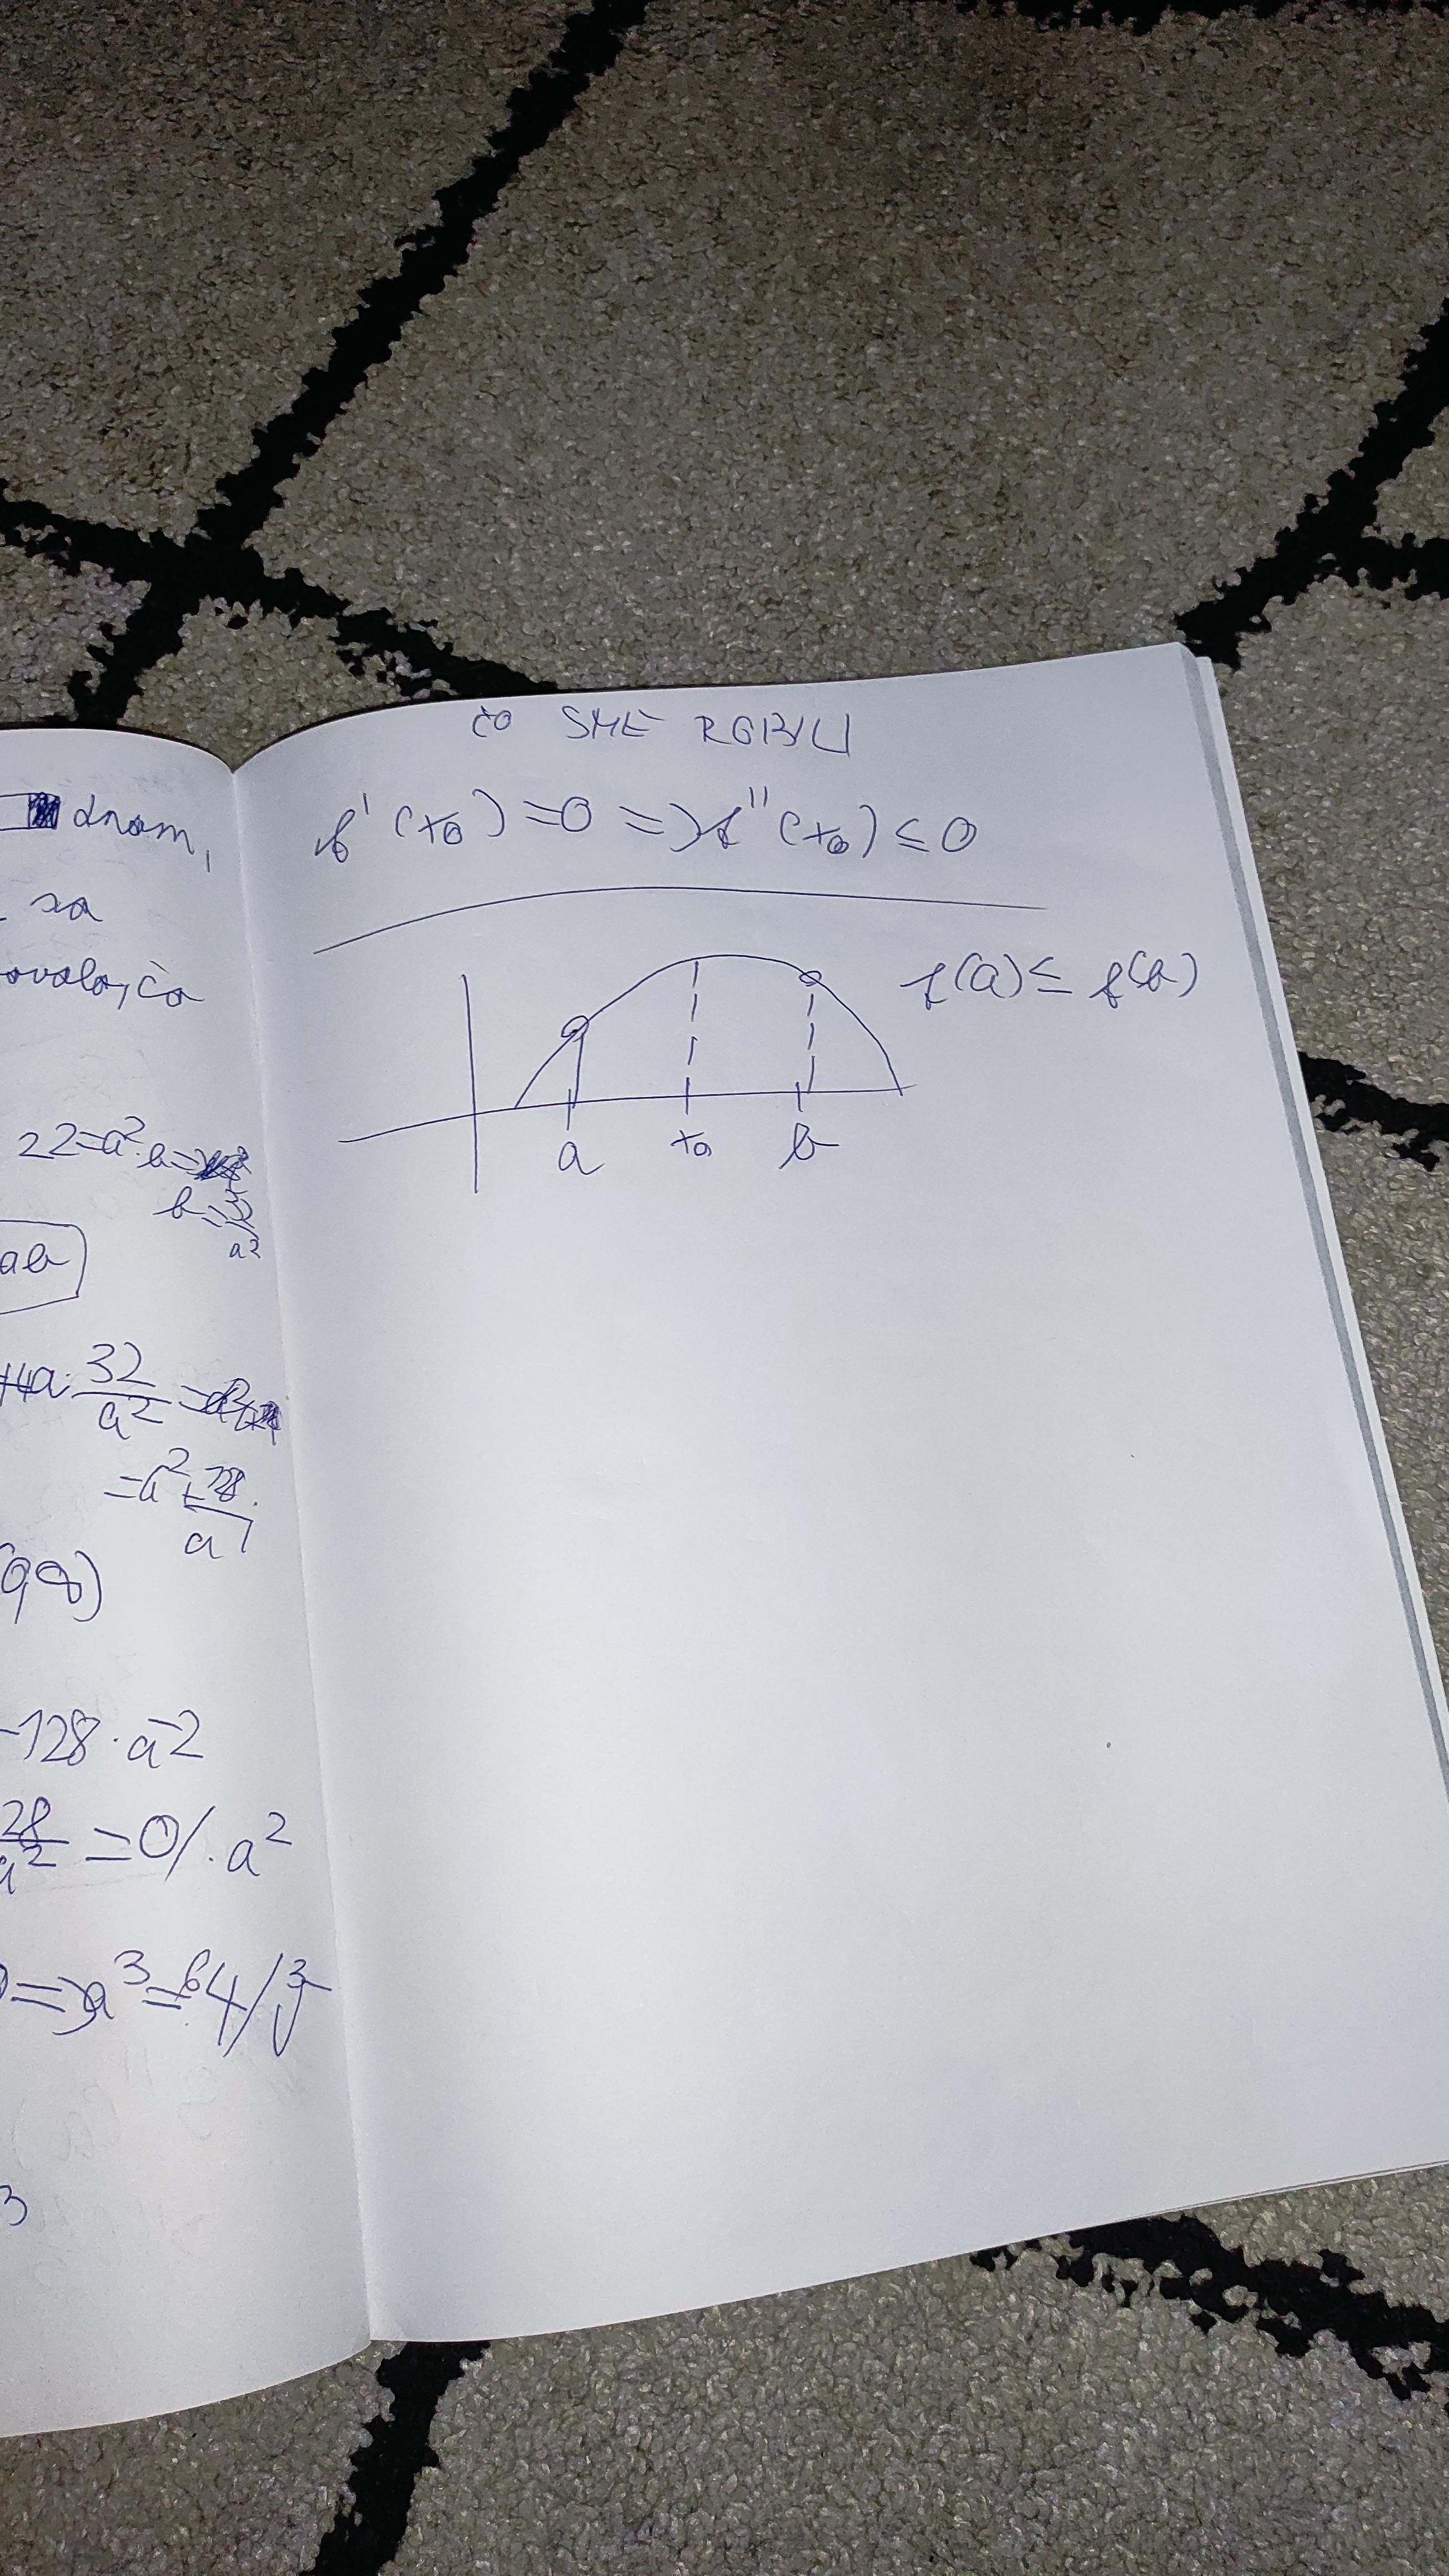 dnom,
sa
ovalo, čo
22=a².b=>
b=
a2
ab
+4a.32/a² =
=a²+128/a
-128.a-2
28/a² =0/.a²
=>a³=64/³√
3
čo SME ROBILI
f'(x₀)=0=>f''(x₀)≤0
f(a)≤f(b)
a x₀ b